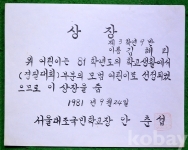 상 장
제 3 학년 9 반
이름 김 혜 리
위 어린이는 81 학년도의 학교생활에서
(경필대회) 부문의 모범 어린이로 선정되었
으므로 이 상장을 줌
1981 년 9 월 24 일
서울대조국민학교장 안 춘 섭
kobay